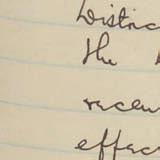 Distric
the
recen
effec